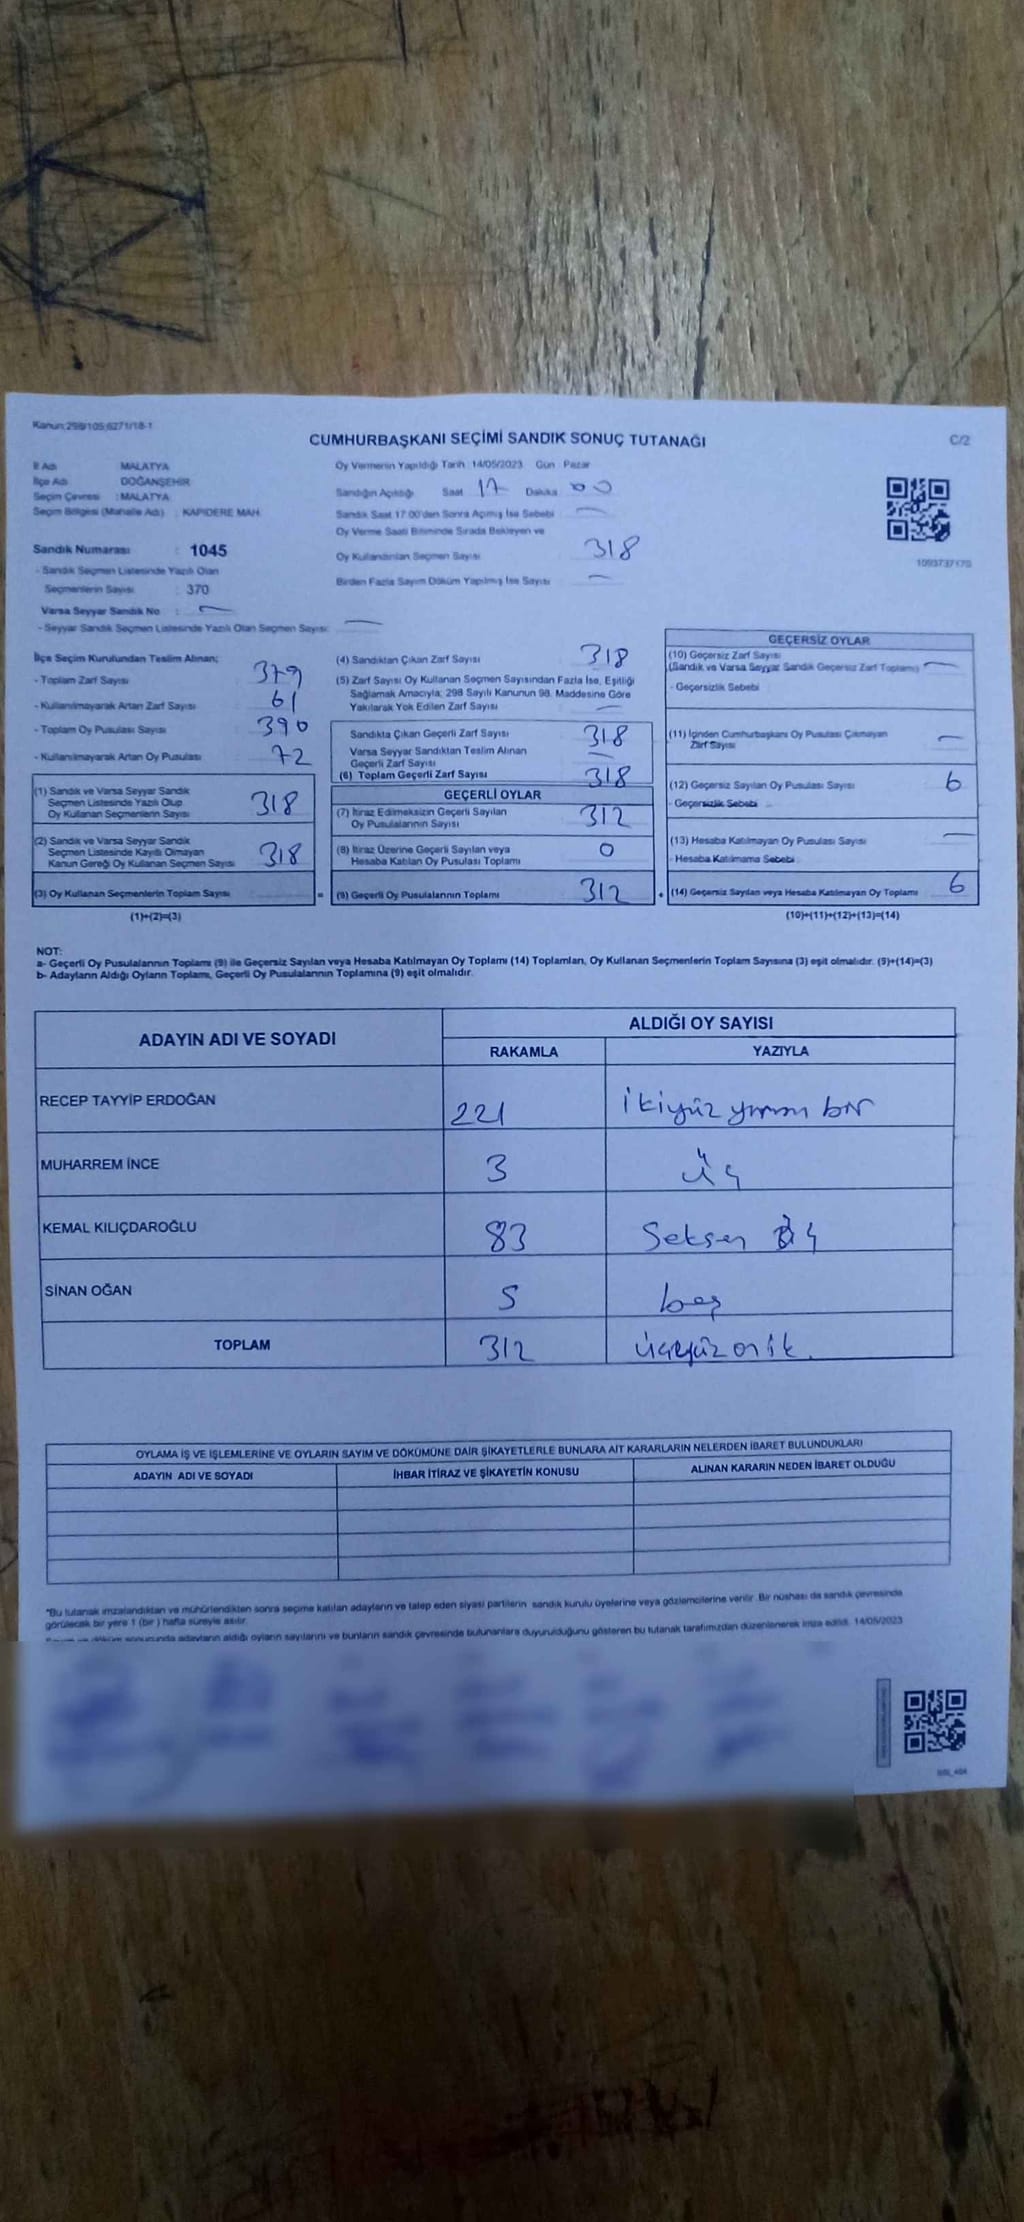 Kanun:298/105;6271/18-1
CUMHURBAŞKANI SEÇİMİ SANDIK SONUÇ TUTANAĞI
C/2
İl Adı MALATYA
İlçe Adı DOĞANŞEHİR
Seçim Çevresi : MALATYA
Seçim Bölgesi (Mahalle Adı) : KAPIDERE MAH.
Sandık Numarası : 1045
- Sandık Seçmen Listesinde Yazılı Olan
Seçmenlerin Sayısı : 370
Varsa Seyyar Sandık No : —
- Seyyar Sandık Seçmen Listesinde Yazılı Olan Seçmen Sayısı: —
Oy Vermenin Yapıldığı Tarih : 14/05/2023 Gün : Pazar
Sandığın Açıldığı Saat 17 Dakika 00
Sandık Saat 17:00'den Sonra Açımış İse Sebebi : —
Oy Verme Saati Bitiminde Sırada Bekleyen ve
Oy Kullandırılan Seçmen Sayısı 318
Birden Fazla Sayım Döküm Yapılmış İse Sayısı : —
1093737170
İlçe Seçim Kurulundan Teslim Alınan;
- Toplam Zarf Sayısı 379
- Kullanılmayarak Artan Zarf Sayısı 61
- Toplam Oy Pusulası Sayısı 390
- Kullanılmayarak Artan Oy Pusulası 72
(1) Sandık ve Varsa Seyyar Sandık
Seçmen Listesinde Yazılı Olup
Oy Kullanan Seçmenlerin Sayısı 318
(2) Sandık ve Varsa Seyyar Sandık
Seçmen Listesinde Kayıtlı Olmayan
Kanun Gereği Oy Kullanan Seçmen Sayısı 318
(3) Oy Kullanan Seçmenlerin Toplam Sayısı =
(1)+(2)=(3)
(4) Sandıktan Çıkan Zarf Sayısı 318
(5) Zarf Sayısı Oy Kullanan Seçmen Sayısından Fazla İse, Eşitliği
Sağlamak Amacıyla; 298 Sayılı Kanunun 98. Maddesine Göre
Yakılarak Yok Edilen Zarf Sayısı —
Sandıkta Çıkan Geçerli Zarf Sayısı 318
Varsa Seyyar Sandıktan Teslim Alınan
Geçerli Zarf Sayısı —
(6) Toplam Geçerli Zarf Sayısı 318
GEÇERLİ OYLAR
(7) İtiraz Edilmeksizin Geçerli Sayılan
Oy Pusulalarının Sayısı 312
(8) İtiraz Üzerine Geçerli Sayılan veya
Hesaba Katılan Oy Pusulası Toplamı 0
(9) Geçerli Oy Pusulalarının Toplamı 312 +
GEÇERSİZ OYLAR
(10) Geçersiz Zarf Sayısı
(Sandık ve Varsa Seyyar Sandık Geçersiz Zarf Toplamı) —
- Geçersizlik Sebebi
(11) İçinden Cumhurbaşkanı Oy Pusulası Çıkmayan
Zarf Sayısı —
(12) Geçersiz Sayılan Oy Pusulası Sayısı 6
- Geçersizlik Sebebi
(13) Hesaba Katılmayan Oy Pusulası Sayısı —
- Hesaba Katılmama Sebebi
(14) Geçersiz Sayılan veya Hesaba Katılmayan Oy Toplamı 6
(10)+(11)+(12)+(13)=(14)
NOT:
a- Geçerli Oy Pusulalarının Toplamı (9) ile Geçersiz Sayılan veya Hesaba Katılmayan Oy Toplamı (14) Toplamları, Oy Kullanan Seçmenlerin Toplam Sayısına (3) eşit olmalıdır. (9)+(14)=(3)
b- Adayların Aldığı Oyların Toplamı, Geçerli Oy Pusulalarının Toplamına (9) eşit olmalıdır.
ADAYIN ADI VE SOYADI ALDIĞI OY SAYISI
RAKAMLA YAZIYLA
RECEP TAYYİP ERDOĞAN 221 ikiyüz yirmi bir
MUHARREM İNCE 3 üç
KEMAL KILIÇDAROĞLU 83 Seksen üç
SİNAN OĞAN 5 beş
TOPLAM 312 üçyüz oniki.
OYLAMA İŞ VE İŞLEMLERİNE VE OYLARIN SAYIM VE DÖKÜMÜNE DAİR ŞİKAYETLERLE BUNLARA AİT KARARLARIN NELERDEN İBARET BULUNDUKLARI
ADAYIN ADI VE SOYADI İHBAR İTİRAZ VE ŞİKAYETİN KONUSU ALINAN KARARIN NEDEN İBARET OLDUĞU
*Bu tutanak imzalandıktan ve mühürlendikten sonra seçime katılan adayların ve talep eden siyasi partilerin sandık kurulu üyelerine veya gözlemcilerine verilir. Bir nüshası da sandık çevresinde
görülecek bir yere 1 (bir) hafta süreyle asılır.
Sayım ve döküm sonucunda adayların aldığı oyların sayılarını ve bunların sandık çevresinde bulunanlara duyurulduğunu gösteren bu tutanak tarafımızdan düzenlenerek imza edildi. 14/05/2023